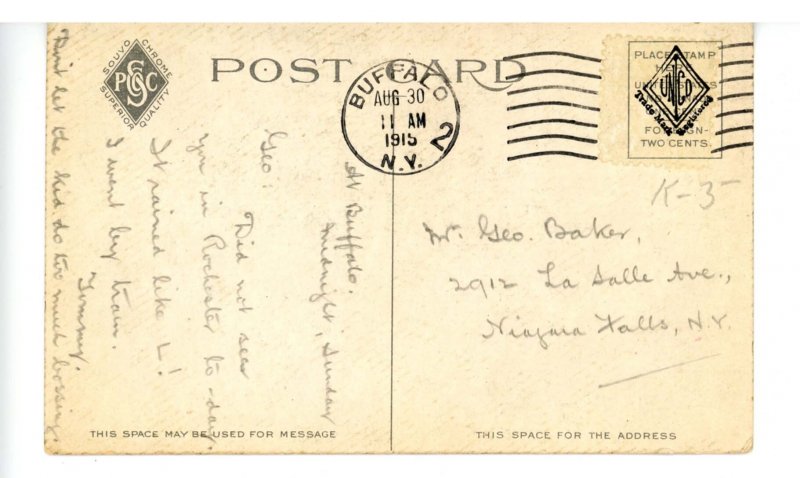 SOUVO CHROME
P S C
SUPERIOR QUALITY
POST CARD
BUFFALO
AUG 30
11 AM
1915
N.Y.
2
PLACE STAMP
UNCO
Trade Mark Registered
FOREIGN-
TWO CENTS.
K-5
At Buffalo.
Midnight, Sunday
Geo:
Did not see
you in Rochester to-day.
It rained like L!
I went by train.
Tommy.
Don't let the kid do too much bossing.
Mr. Geo. Baker,
2912 La Salle Ave.,
Niagara Falls, N.Y.
THIS SPACE MAY BE USED FOR MESSAGE
THIS SPACE FOR THE ADDRESS